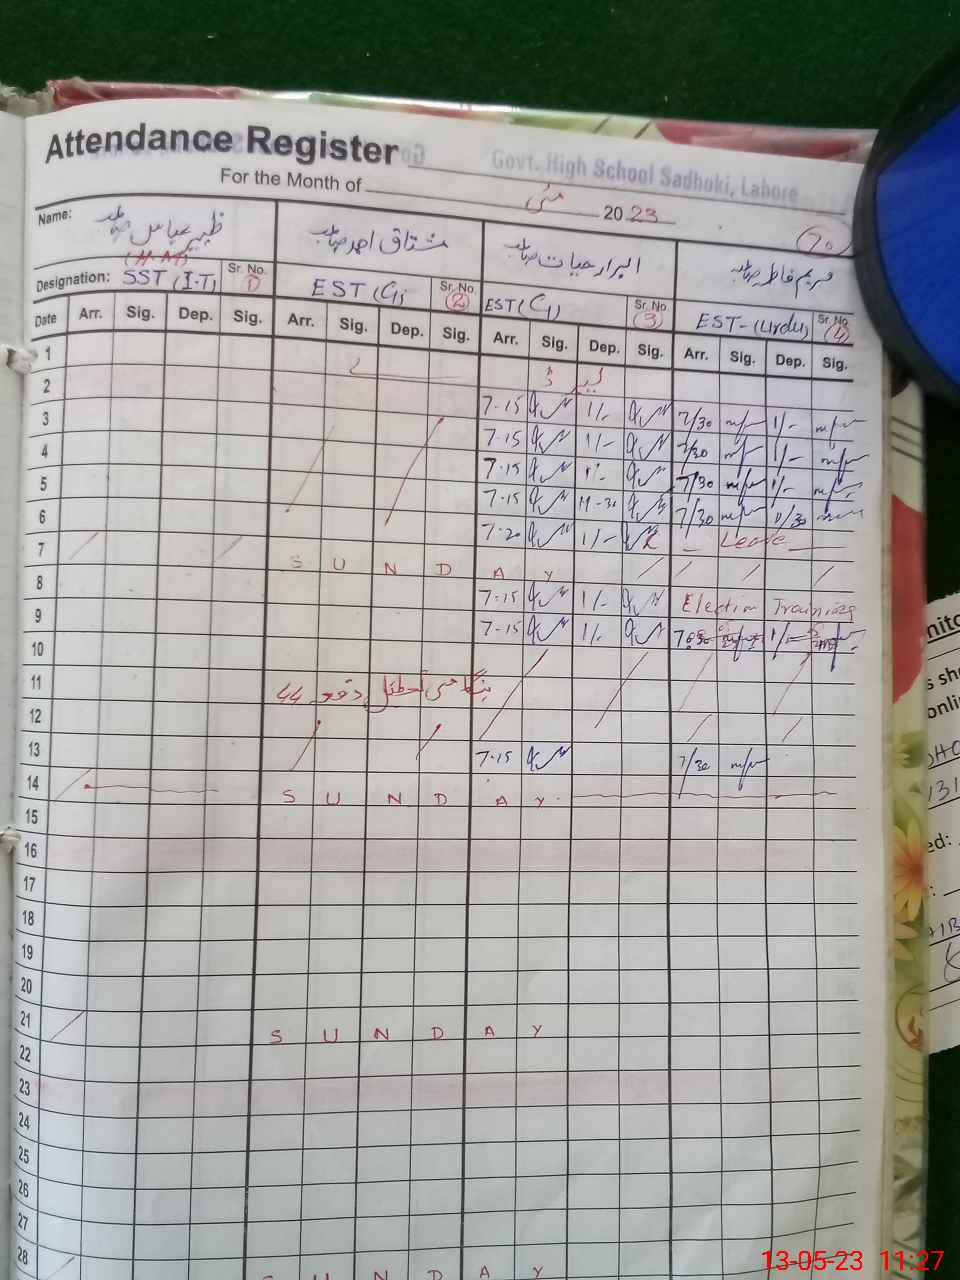 Attendance Register
Govt. High School Sadhoki, Lahore
For the Month of مئی 2023
70
Name: ظہیر عباس صاحب مشتاق احمد صاحب ابرار حیات صاحب مریم فاطمہ صاحبہ
(H.M)
Designation: SST (I.T) Sr. No. 1 EST (G) Sr. No. 2 EST (G) Sr. No. 3 EST-(Urdu) Sr. No. 4
Date Arr. Sig. Dep. Sig. Arr. Sig. Dep. Sig. Arr. Sig. Dep. Sig. Arr. Sig. Dep. Sig.
1
2
3 7-15 1/- 7/30 1/-
4 7-15 1/- 7/30 1/-
5 7-15 1/- 7/30 1/-
6 7-15 11-30 7/30 11/30
7 7-20 1/- Leave
S U N D A Y
8 7-15 1/- Election Training
9 7-15 1/- 1/-
10
11 44
12
13 7-15 7/30
14 S U N D A Y
15
16
17
18
19
20
21 S U N D A Y
22
23
24
25
26
27
28 S U N D A Y
13-05-23 11:27